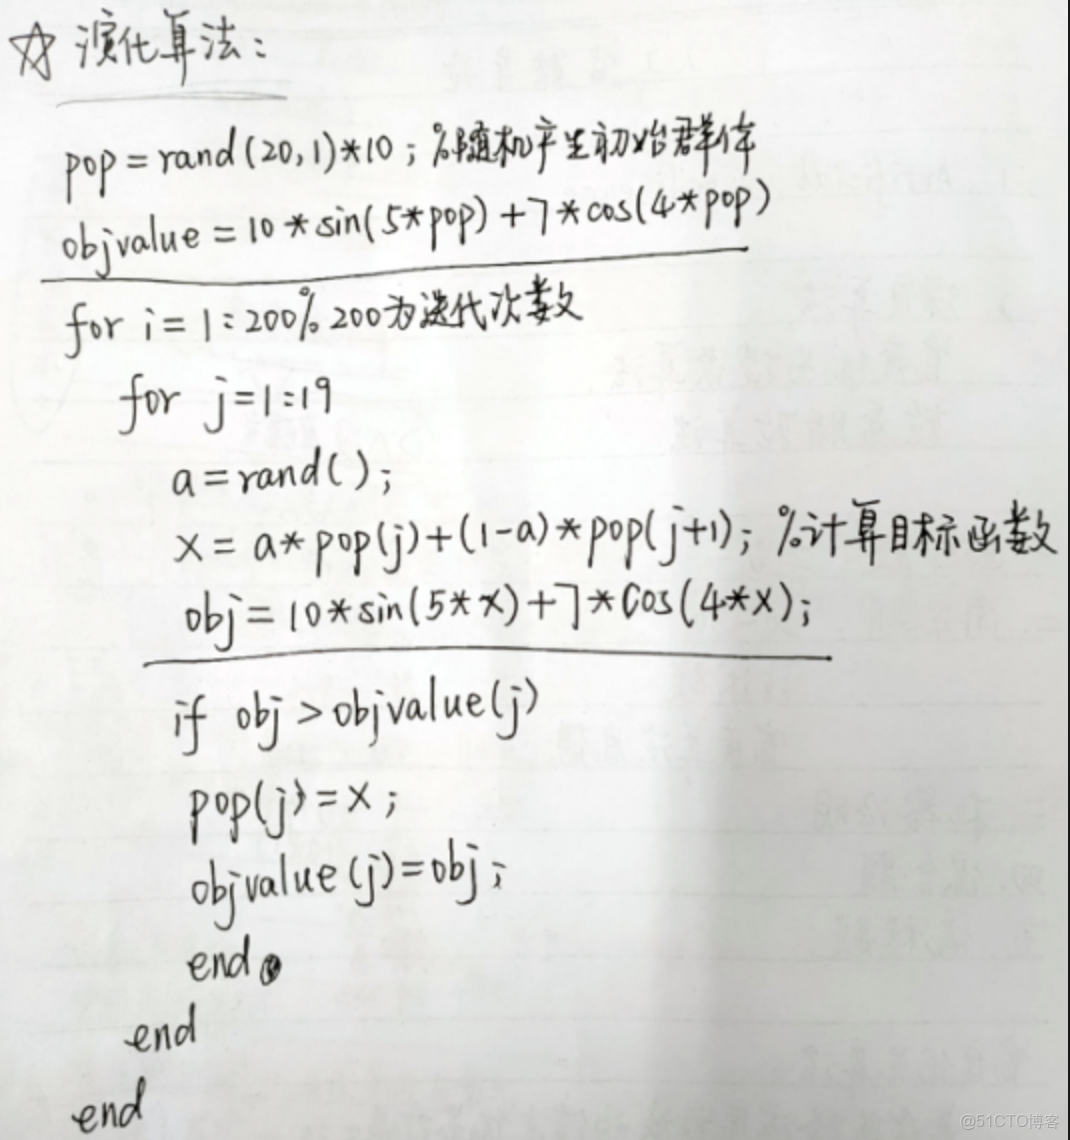 ☆ 演化算法:
pop=rand(20,1)*10; %随机产生初始群体
objvalue=10*sin(5*pop)+7*cos(4*pop)
for i=1:200%200为迭代次数
for j=1:19
a=rand();
x=a*pop(j)+(1-a)*pop(j+1); %计算目标函数
obj=10*sin(5*x)+7*cos(4*x);
if obj>objvalue(j)
pop(j)=x;
objvalue(j)=obj;
end
end
end
@51CTO博客